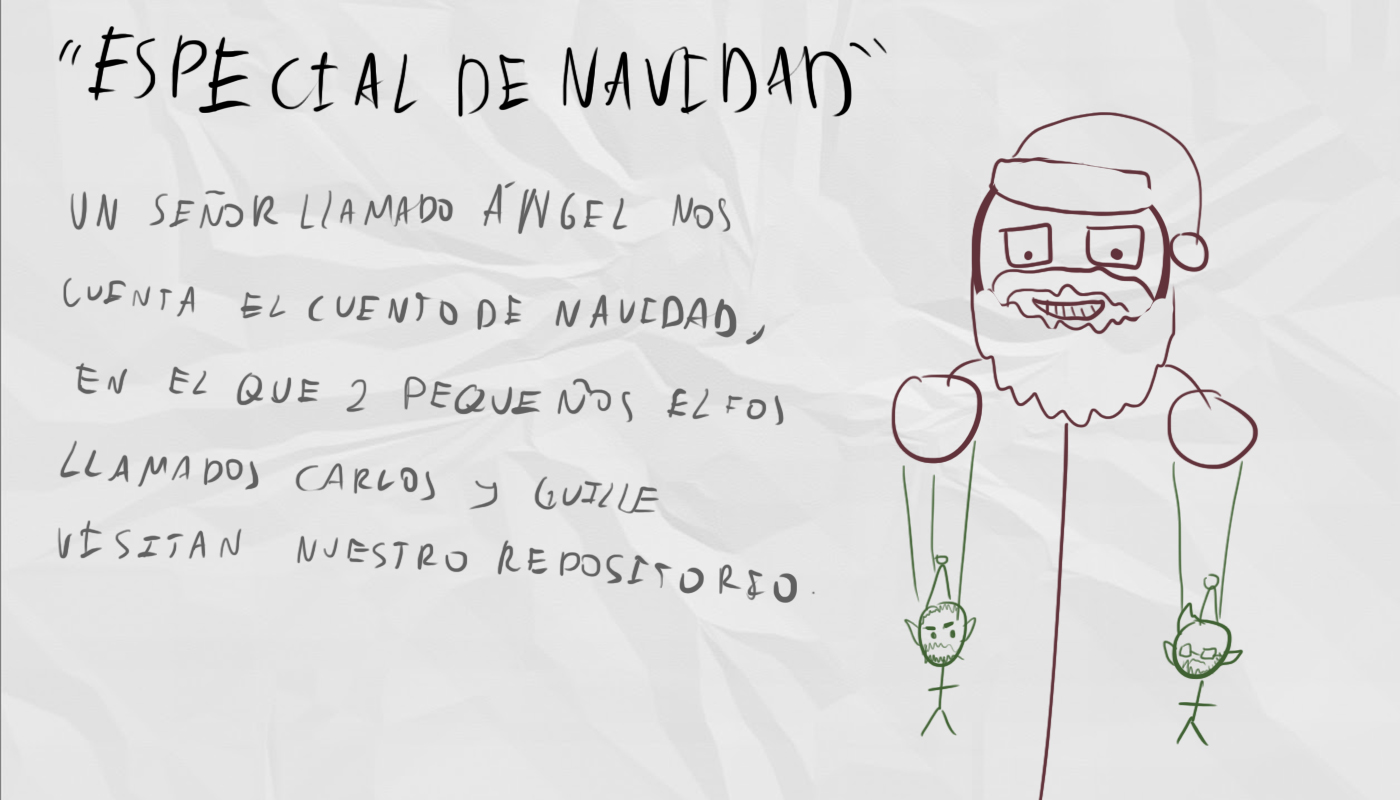 "ESPECIAL DE NAVIDAD"
UN SEÑOR LLAMADO ÁNGEL NOS
CUENTA EL CUENTO DE NAVIDAD,
EN EL QUE 2 PEQUEÑOS ELFOS
LLAMADOS CARLOS Y GUILLE
VISITAN NUESTRO REPOSITORIO.